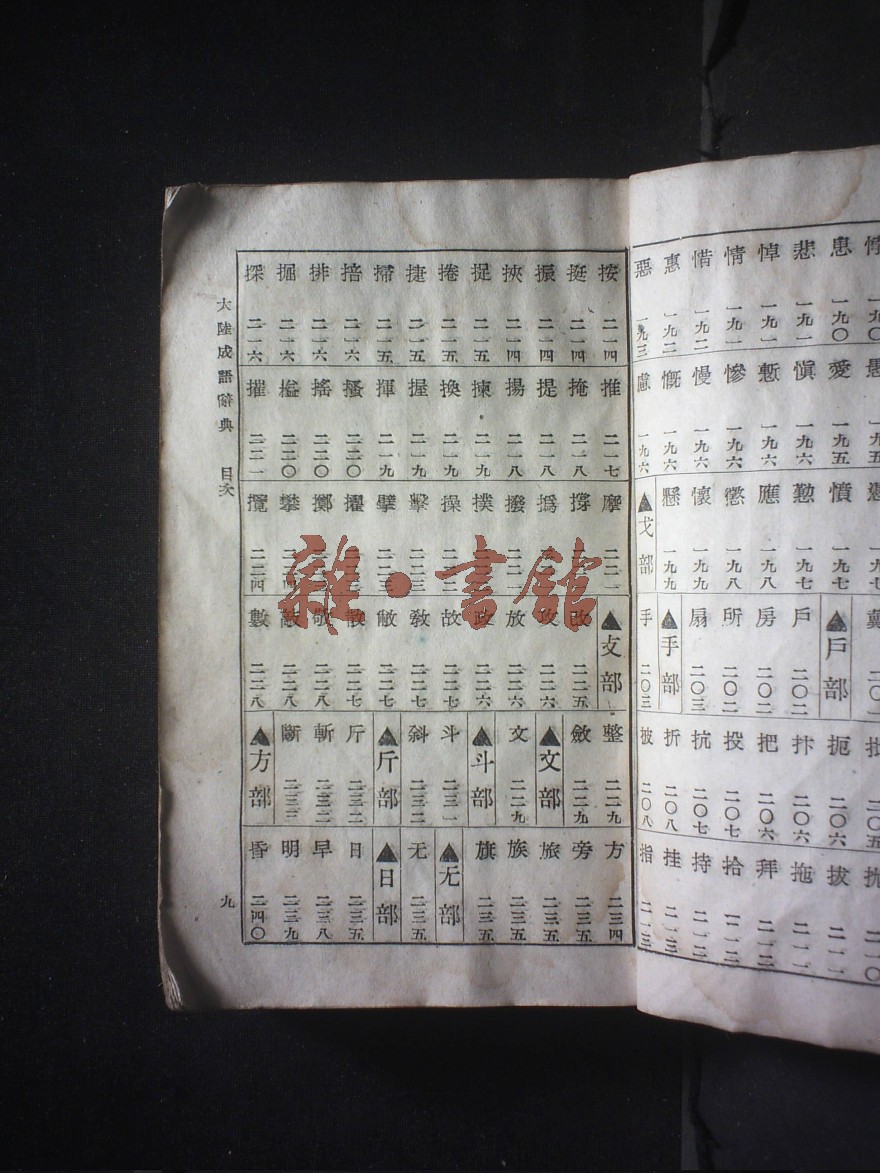 患 一九〇
悲 一九一
悼 一九一
情 一九一
惜 一九二
惠 一九二
惡 一九三
愚 一九五
愛 一九五
愼 一九六
慙 一九六
慘 一九六
慢 一九六
慨 一九六
慮 一九六
一九七
憤 一九七
懃 一九七
應 一九八
懲 一九八
懷 一九九
懸 一九九
▲戈部
戴
▲戶部
戶 二〇二
房 二〇二
所 二〇二
扇 二〇三
▲手部
手 二〇三
二〇五
扼 二〇六
抃 二〇六
把 二〇六
投 二〇七
抗 二〇七
折 二〇八
披 二〇八
二一〇
拔 二一一
拖 二一一
拜 二一二
拾 二一二
持 二一二
挂 二一三
指 二一三
按 二一四
挺 二一四
振 二一四
挾 二一四
捉 二一五
捲 二一五
捷 二一五
掃 二一五
掊 二一六
排 二一六
掘 二一六
探 二一六
推 二一七
掩 二一八
提 二一八
揚 二一八
揀 二一九
換 二一九
握 二一九
揮 二一九
搔 二二〇
搖 二二〇
搤 二二〇
摧 二二一
摩 二二一
撐
撝
撥
撲
操
擊 二二三
擘 二二三
擢
擲
攀
攬 二二四
▲攴部
改 二二五
攻 二二六
放 二二六
政 二二六
故 二二七
敎 二二七
敝 二二七
散 二二七
敬 二二八
敵 二二八
數 二二八
整 二二九
斂 二二九
▲文部
文 二二九
▲斗部
斗 二三一
斜 二三二
▲斤部
斤 二三二
斬 二三二
斷 二三三
▲方部
方 二三四
旁 二三五
旅 二三五
族 二三五
旗 二三五
▲无部
无 二三五
▲日部
日 二三五
早 二三八
明 二三九
昏 二四〇
大陸成語辭典 目次
九
雜·書館